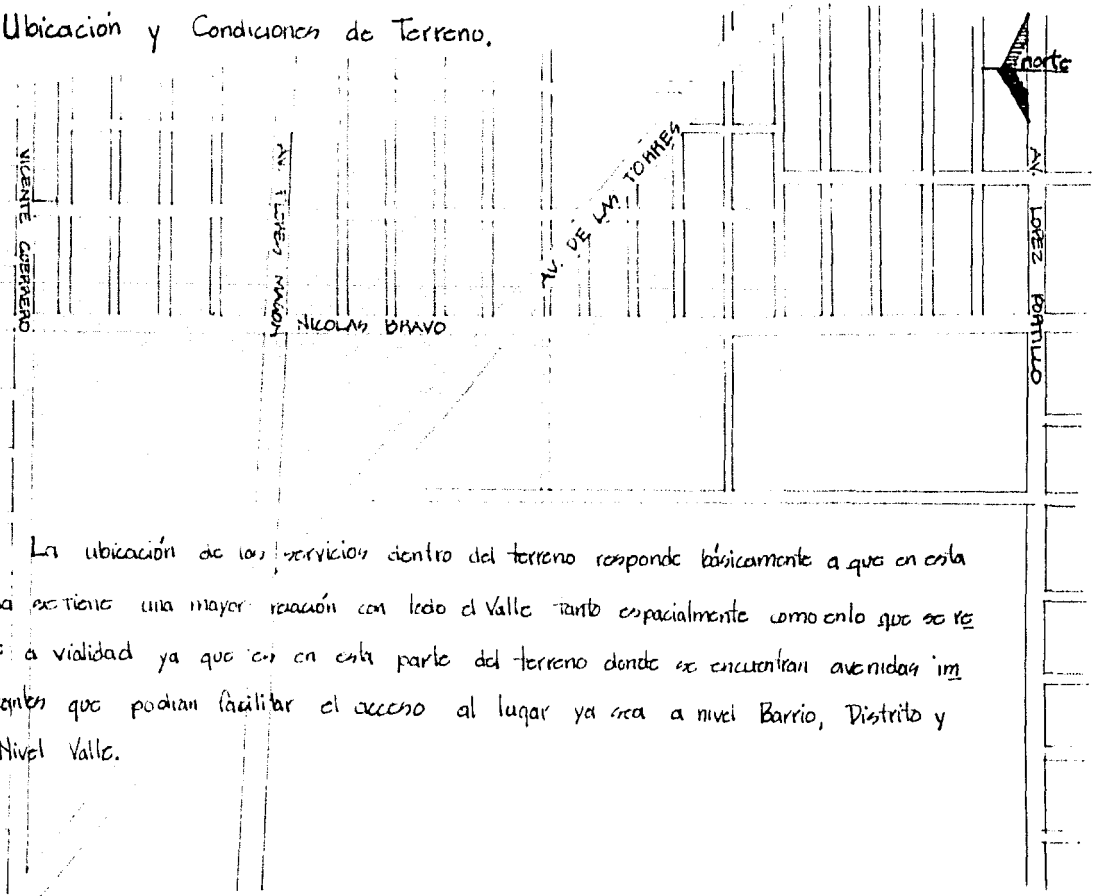 Ubicación y Condiciones de Terreno.
norte
VICENTE GUERRERO
AV. FLORES MAGON
AV. DE LAS TORRES
AV. LOPEZ PORTILLO
NICOLAS BRAVO
La ubicación de los servicios dentro del terreno responde básicamente a que en esta
se tiene una mayor relación con todo el Valle tanto espacialmente como en lo que se re
a vialidad ya que es en esta parte del terreno donde se encuentran avenidas im
que podrian facilitar el acceso al lugar ya sea a nivel Barrio, Distrito y
Nivel Valle.